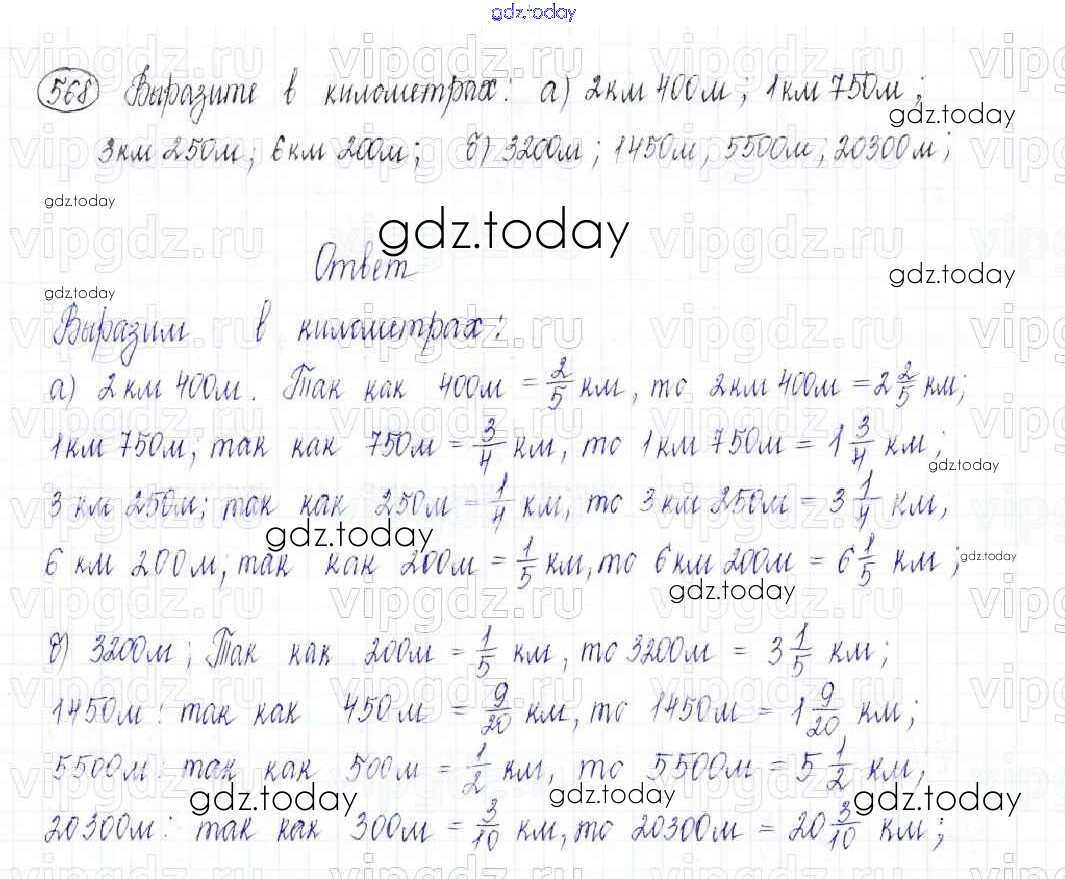 gdz.today
568 Выразите в километрах: а) 2км 400м; 1км 750м;
gdz.today
3км 250м; 6км 200м; б) 3200м; 1450м, 5500м, 20300м;
gdz.today
gdz.today
Ответ
gdz.today
gdz.today
Выразим в километрах:
а) 2км 400м. Так как 400м = 2/5 км, то 2км 400м = 2 2/5 км;
1км 750м; так как 750м = 3/4 км, то 1км 750м = 1 3/4 км;
gdz.today
3 км 250м; так как 250м = 1/4 км, то 3км 250м = 3 1/4 км,
gdz.today
6 км 200м; так как 200м = 1/5 км, то 6км 200м = 6 1/5 км;
gdz.today
gdz.today
б) 3200м; Так как 200м = 1/5 км, то 3200м = 3 1/5 км;
1450м: так как 450м = 9/20 км, то 1450м = 1 9/20 км;
5500м: так как 500м = 1/2 км, то 5500м = 5 1/2 км,
gdz.today gdz.today gdz.today
20300м: так как 300м = 3/10 км, то 20300м = 20 3/10 км;